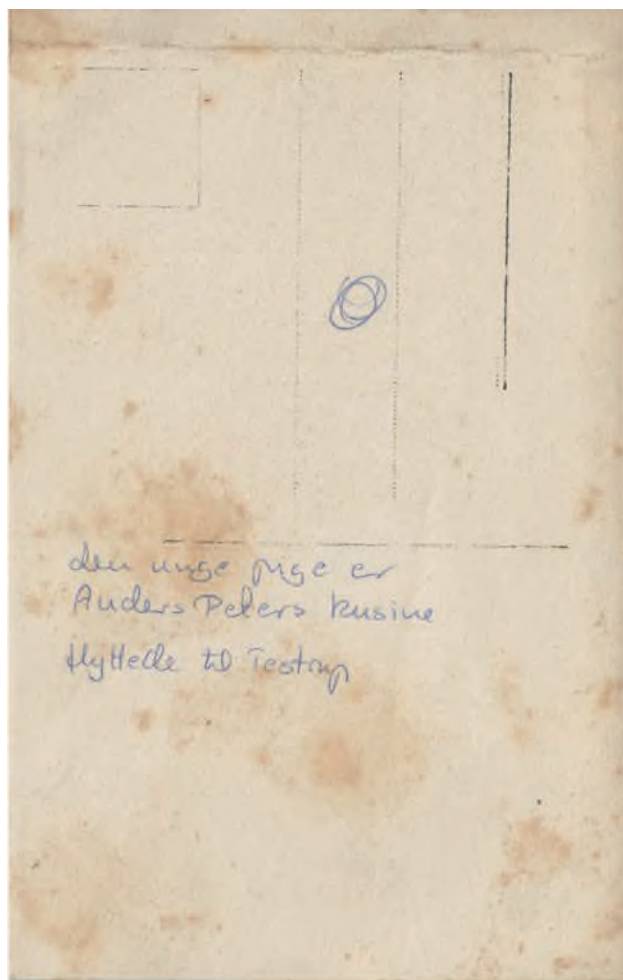 den unge pige er
Anders Peters kusine
flyttede til Testrup